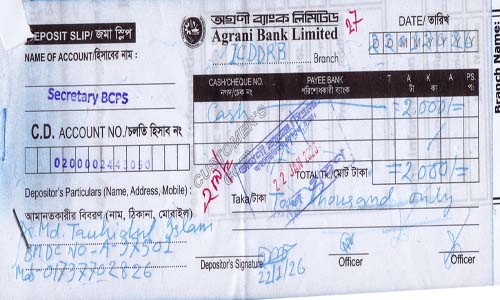 অগ্রণী ব্যাংক লিমিটেড
DEPOSIT SLIP/ জমা স্লিপ
Agrani Bank Limited
27
DATE/ তারিখ
NAME OF ACCOUNT/হিসাবের নাম
ICDDRB
Branch
CASH/CHEQUE NO.
নগদ/চেক নং
PAYEE BANK
পরিশোধকারী ব্যাংক
T A K A
টাকা
PS.
পঃ
Secretary BCPS
Cash
=2,000/=
C.D. ACCOUNT NO./চলতি হিসাব নং
CUSTOMER'S
0200002443090
22 JAN 2026
TOTAL TK./মোট টাকা
=2,000/=
Depositor's Particulars (Name, Address, Mobile) :
Taka/টাকা
Two thousand only
আমানতকারীর বিবরণ (নাম, ঠিকানা, মোবাইল)
Dr. Md. Tauhiqul Islam
BMDC NO-A-
Mob-01737702826
Depositor's Signature
22/1/26
Officer
Officer